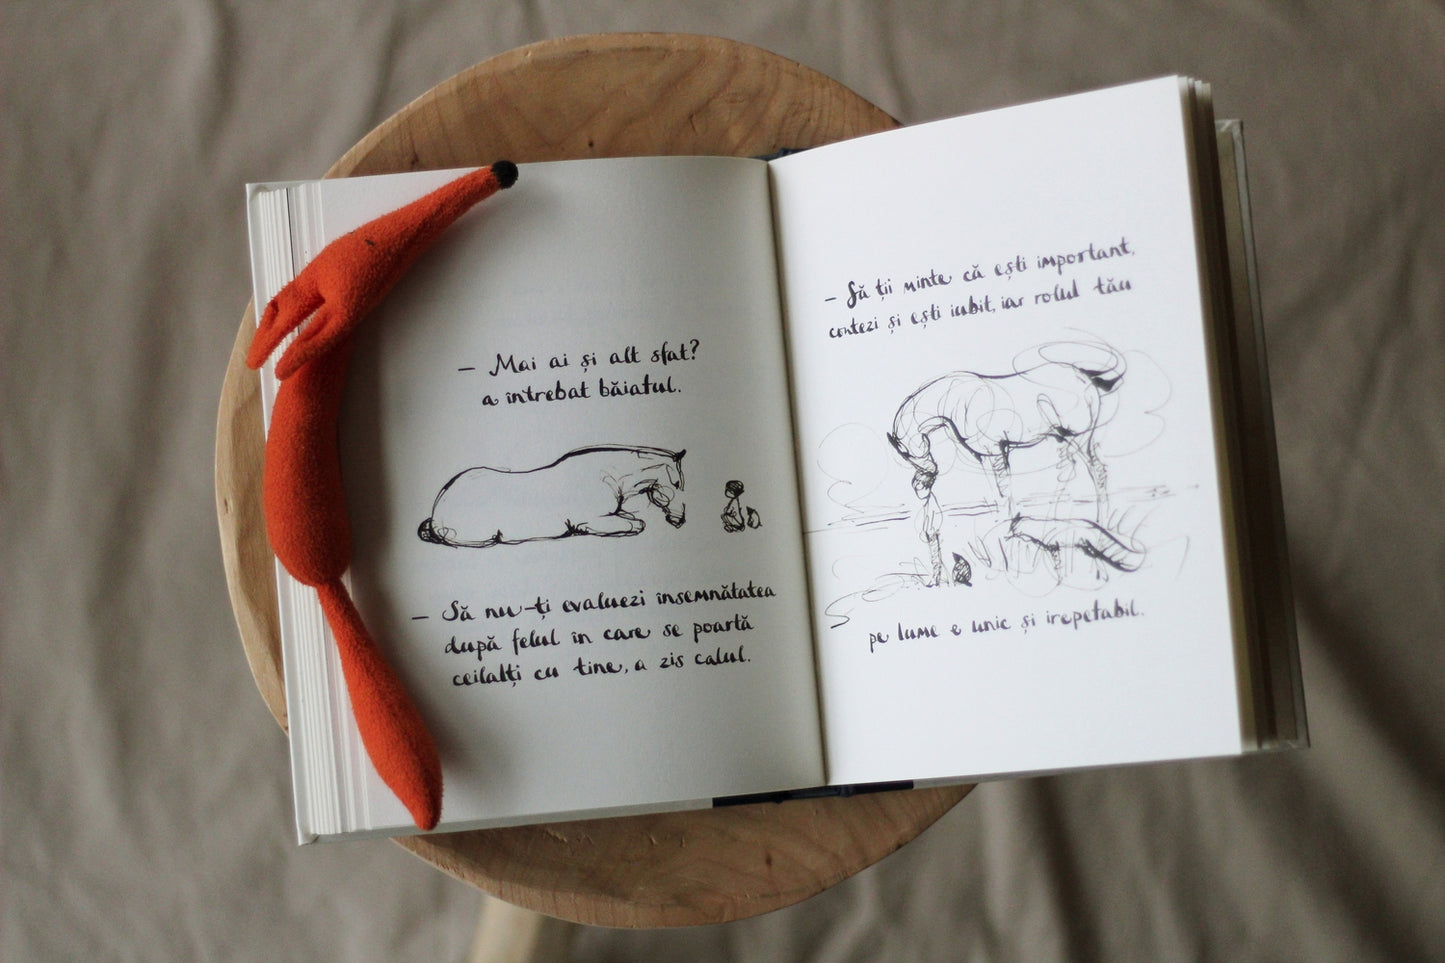 — Mai ai și alt sfat?
a întrebat băiatul.
— Să nu-ți evaluezi însemnătatea
după felul în care se poartă
ceilalți cu tine, a zis calul.
— Să ții minte că ești important,
contezi și ești iubit, iar rolul tău
pe lume e unic și irepetabil.